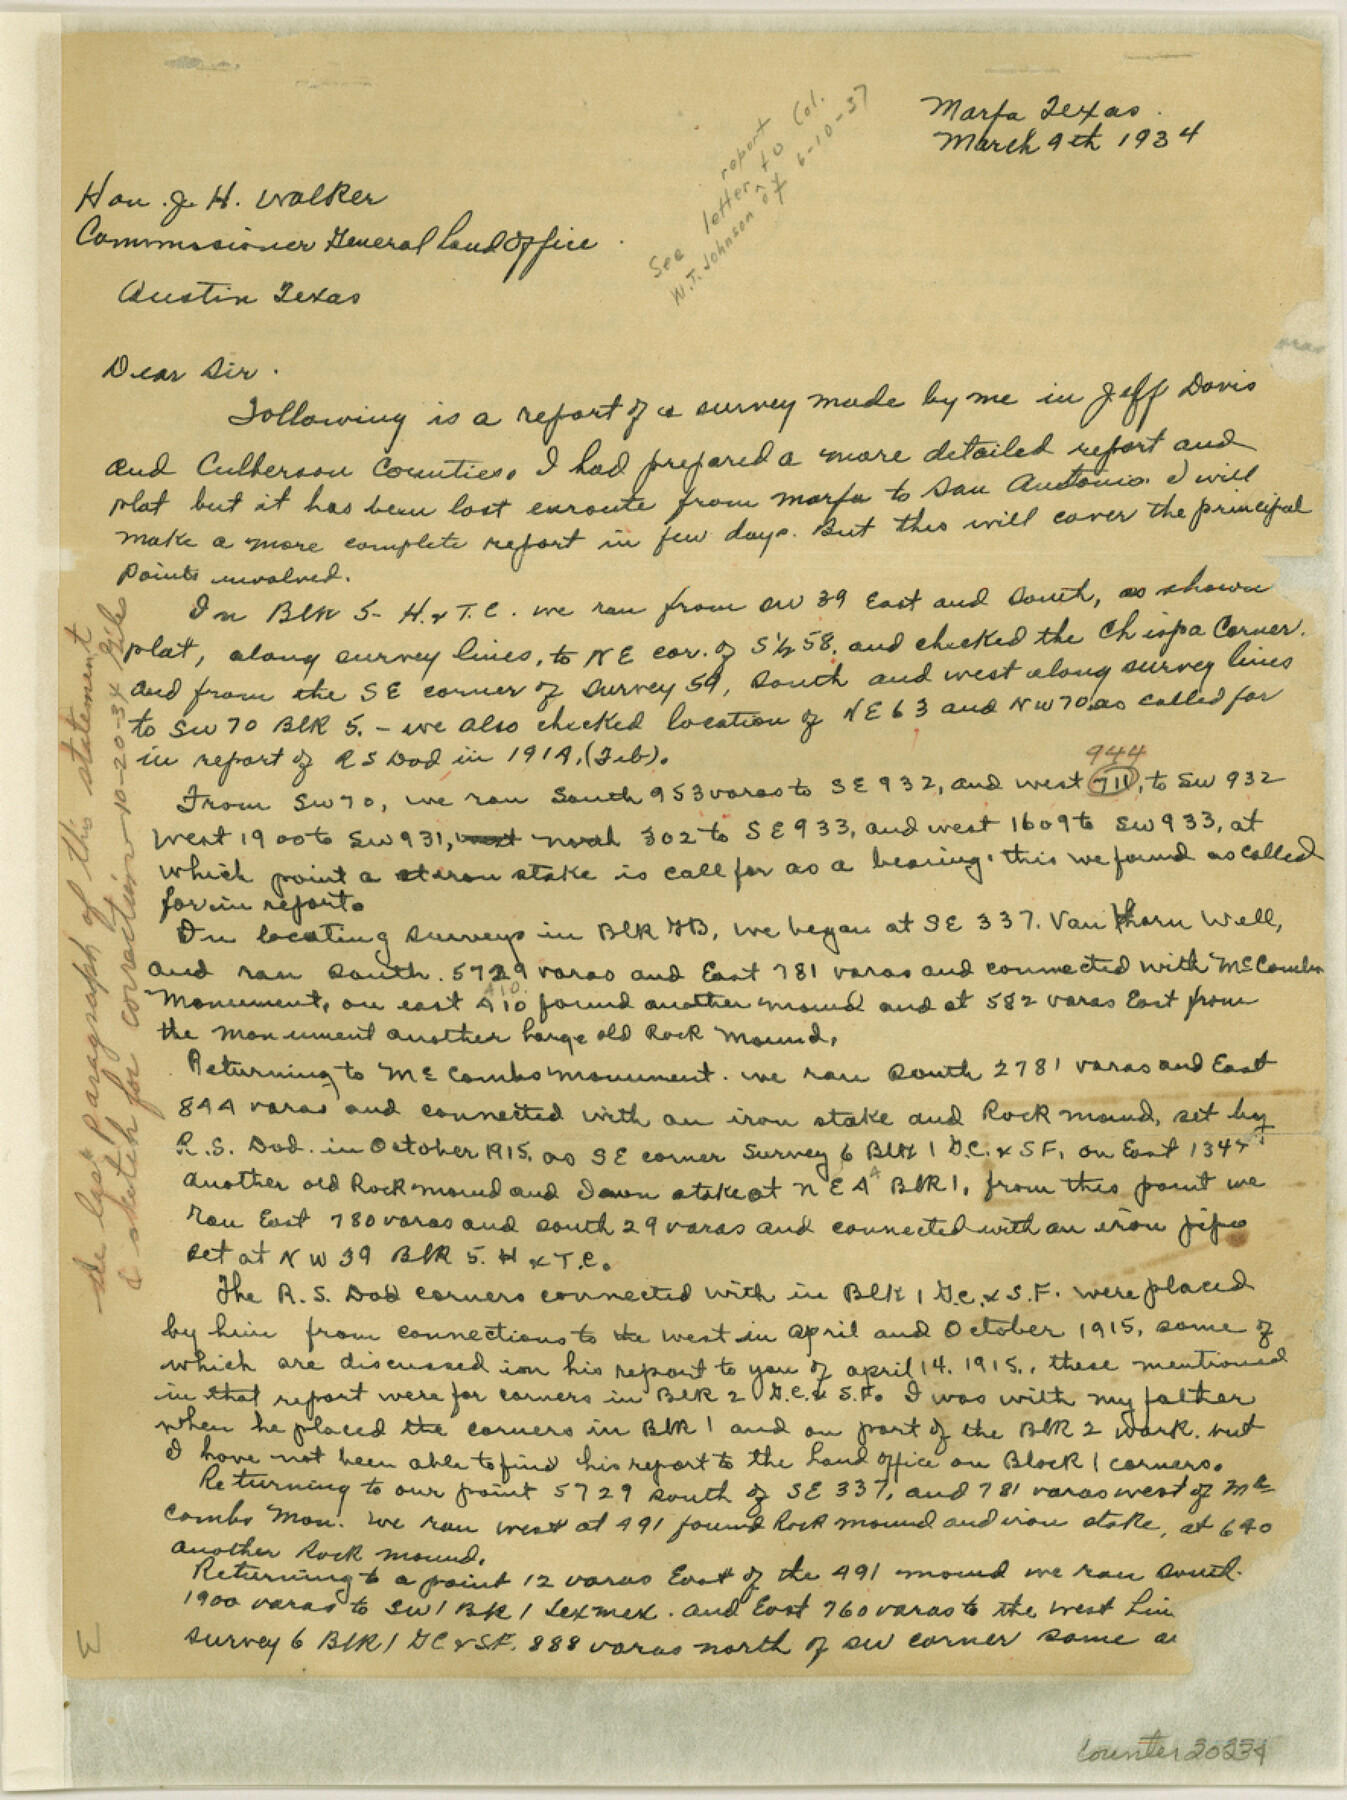 Marfa Texas.
March 9th 1934
See report
letter to Col.
W.T. Johnson of 6-10-37
Hon. J. H. Walker
Commissioner General Land Office
Austin Texas
Dear Sir.
Following is a report of a survey made by me in Jeff Davis
and Culberson Counties. I had prepared a more detailed report and
plat but it has been lost enroute from Marfa to San Antonio. I will
make a more complete report in few days. But this will cover the principal
points involved.
In Blk 5- H. & T.C. we ran from SW 39 East and South, as shown
plat, along survey lines, to NE cor. of S½ 58, and checked the Chispa Corner.
and from the SE corner of Survey 59, South and west along survey lines
to SW 70 Blk 5. - we also checked location of NE 63 and NW 70 as called for
in report of R S Dod in 1914, (Feb).
944
From SW 70, we ran South 953 varas to SE 932, and west 711, to SW 932
West 1900 to SW 931, west north 302 to SE 933, and west 1609 to SW 933, at
which point a iron stake is call for as a bearing. this we found as called
for in report.
In locating surveys in Blk GB, we began at SE 337. Van Horn Well,
and ran South. 5729 varas and East 781 varas and connected with McCombs
410
Monument, on east 410 found another mound and at 582 varas East from
the monument another large old Rock Mound.
Returning to McCombs Monument. we ran South 2781 varas and East
844 varas and connected with an iron stake and Rock mound, set by
R.S. Dod. in October 1915, as SE corner Survey 6 Blk 1 G.C. & SF, on East 1344
another old Rock mound and Iron stake at NE 4 Blk 1, from this point we
ran East 780 varas and South 29 varas and connected with an iron pipe
set at NW 39 Blk 5. H & T.C.
The R.S. Dod corners connected with in Blk 1 G.C. & S.F. were placed
by him from connections to the west in April and October 1915, some of
which are discussed ion his report to you of April 14. 1915., these mentioned
in that report were for corners in Blk 2 G.C. & S.F. I was with my father
when he placed the corners in Blk 1 and on part of the Blk 2 work. but
I have not been able to find his report to the Land office on Block 1 corners.
Returning to our point 5729 South of SE 337, and 781 varas west of Mc
Combs Mon. We ran west at 491 found Rock mound and iron stake, at 640
another Rock mound.
Returning to a point 12 varas East of the 491 mound we ran South
1900 varas to SW 1 Blk 1 Texmex. and East 760 varas to the West Lin
Survey 6 Blk 1 GC & SF. 888 varas north of SW corner same
See last Paragraph of this statement
& sketch for correction - 10-20-34 Giles
Counter 20234